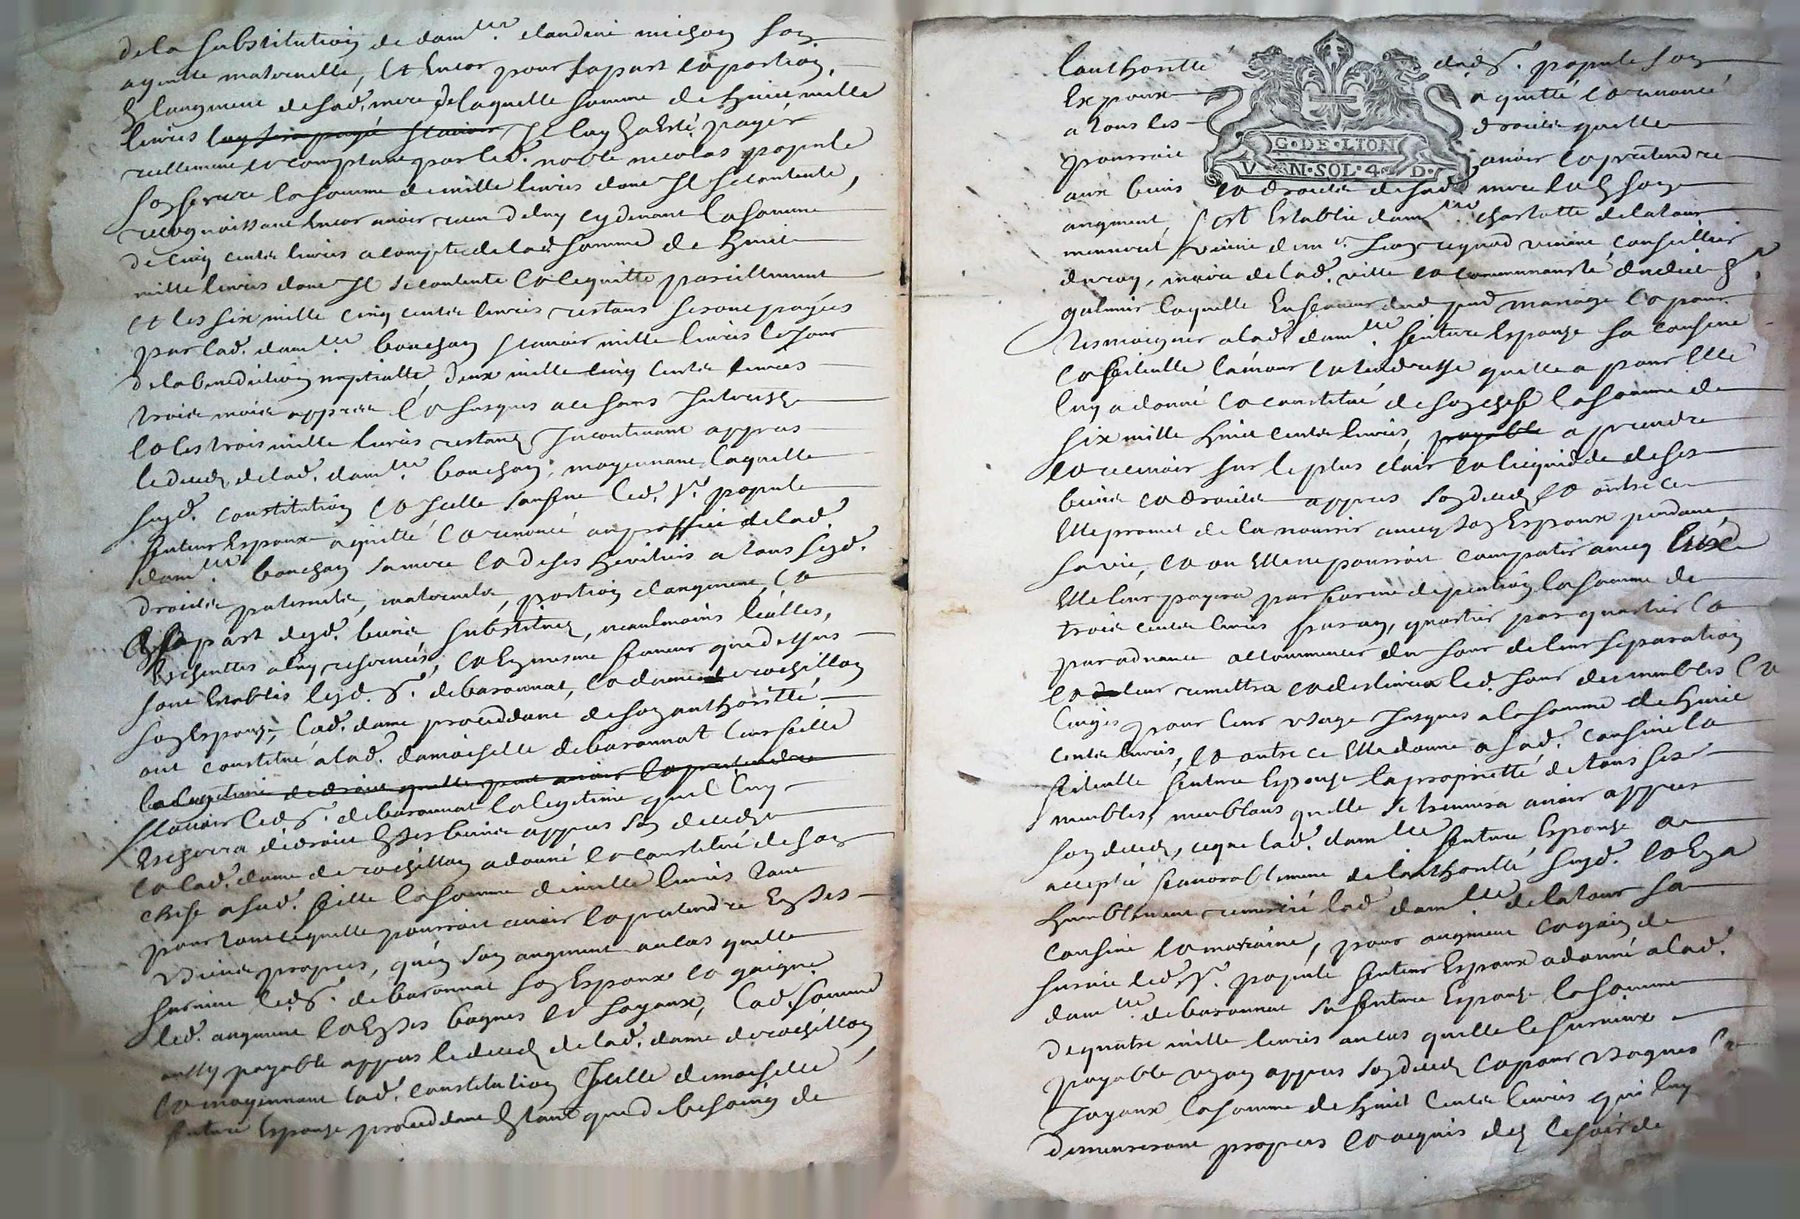 de la substitution de dam.lle claudine michon son
ayeulle maternelle, et encor pour sa part et portion
de laugment de sad. mere de laquelle somme de huict mille
livres luy sera payé scavoir Il luy a esté payér
reellement et comptant par led. noble nicolas popule
son frere la somme de mille livres dont Il se contente,
recognoissant encor avoir receu de luy cy devant la somme
de cinq cents livres a compte de lad. somme de huict
mille livres dont Il se contente et le quitte pareillement
et les six mille cinq cents livres restans seront payées
par lad. dam.lle bouchon scavoir mille livres le jour
de la benediction nuptialle, deux mille cinq cents livres
trois mois apprès et jusques a ce sans Interest
et les trois mille livres restans Incontinant appres
le deces de lad. dam.lle bouchon, moyennant laquelle
susd. constitution et Icelle sauf led. s.r popule
futeur Espoux a quitté et renoncé au proffit de lad.
dam.lle bouchon sa mere et de ses heritiers a tous sesd.
droits paternels, maternels, portion d'augment, et
sa part desd. biens substitués, neanlmoins
escheuttes a luy reservées, et en mesme faveur que dessus
sont Establis lesd. s.r de baronnat, et dame de rochillon
son Espouse lad. dame proceddant de son authoritté
ont constitué a lad. damoiselle de baronnat leur fille
la legitime de droit quelle peut avoir et pretendre
scavoir led. s.r de baronnat la legitime quil luy
Escherra de droit En ses biens appres son deceds
et lad. dame de rochillon a donné et constitué de son
chefs a sad. fille la somme de mille livres tant
pour tout ce quelle pourroit avoir et pretendre En ses
biens propres, qu'en son augment au cas quelle
survive led. s.r de baronnat son Espoux et gaigne
led. augment et En ses bagues et Joyaux, lad. somme
aussy payable appres le deces de lad. dame de rochillon
et moyennant lad. constitution Icelle damoiselle
future Espouse proceddant Estant que de besoing de
lauthoritté dud. s. popule son
Espoux a quitté et renoncé
a tous les droits quelle
pourroit avoir et pretendre
G·DE·LION
V N·SOL·4 D·
aux biens et droits de sad. mere et En son
augment s'est Establie dam.lle charlotte de la tour
menorel vefve de m.r Jean reynod vivant conseiller
du roy, maire de lad. ville et communauté dudict S.t
galmier laquelle En faveur dud. p.nt mariage et pour
tesmoigner a lad. dam.lle future Espouse sa cousine
et fileulle l'amour et tendresse quelle a pour Elle
luy a donné et constitué de son chefs la somme de
six mille huict cents livres, payable a prendre
et recevoir sur le plus clair et liquide de ses
biens et droits appres son deces et outre ce
Elle promet de les nourrir avecq son Espoux pendant
sa vie, et ou Elle ne pourroit compatir avecq Eux
Elle leur payera par forme de pention la somme de
trois cents livres par an, quartier par quartier et
par advance a commencer du jour de leur separation
et leur remettra et deslivrera led. jour des meubles et
linges pour leur usage Jusques a la somme de huict
cents livres, et outre ce Elle donne a sad. cousine et
fileulle future Espouse la proprietté de tous ses
meubles, meublans quelle se treuvera avoir appres
son deces, ce que lad. dam.lle future Espouse a
accepté favorablement de lauthoritté susd. et En a
humblement remercié lad. dam.lle de la tour sa
cousine et maraine, pour augment et gain de
survie led. s.r popule futeur Espoux a donné a lad.
dam.lle de baronnat sa future Espouse la somme
de quatre mille livres au cas quelle le survive
payable un an appres son deces et pour bagues et
Joyaux la somme de huict cents livres qui luy
demeureront propres et acquis dez le soir de